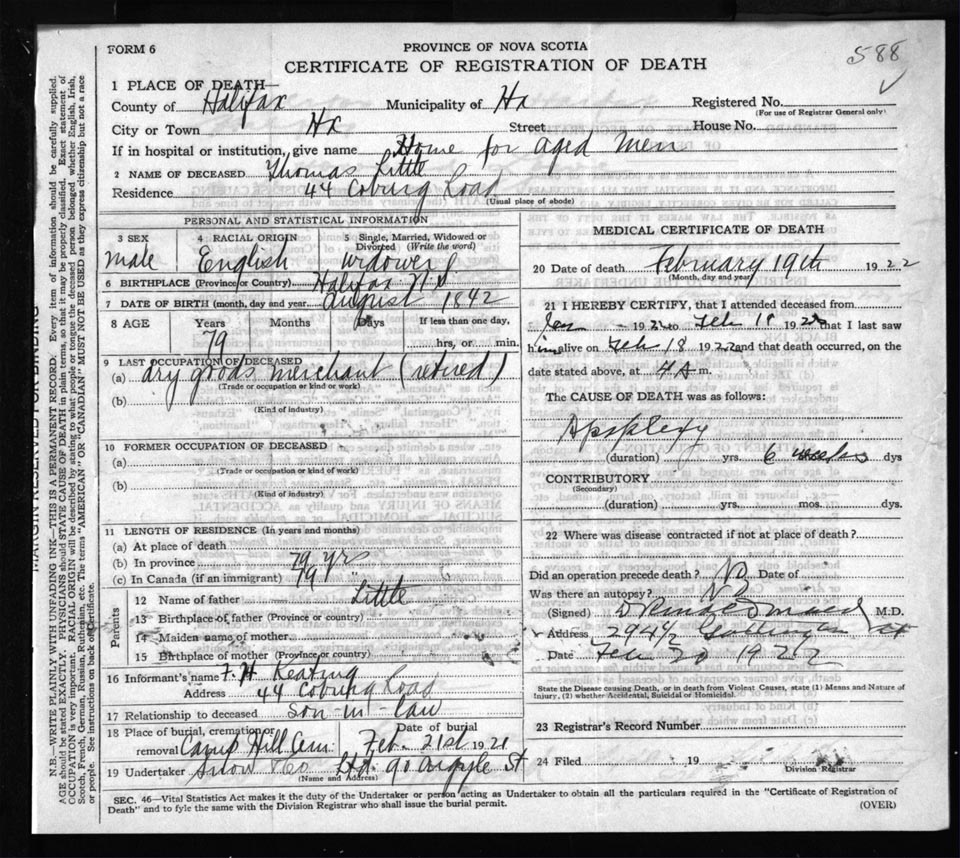 588
FORM 6
PROVINCE OF NOVA SCOTIA
CERTIFICATE OF REGISTRATION OF DEATH
1 PLACE OF DEATH—
County of Halifax Municipality of Hx Registered No.
(For use of Registrar General only)
City or Town Hx Street House No.
If in hospital or institution, give name Home for aged men
2 NAME OF DECEASED Thomas Little
Residence 44 Coburg Road
(Usual place of abode)
PERSONAL AND STATISTICAL INFORMATION
3 SEX male
4 RACIAL ORIGIN English
5 Single, Married, Widowed or Divorced (Write the word) widower
6 BIRTHPLACE (Province or Country) Halifax N.S
7 DATE OF BIRTH (month, day and year) august 1842
8 AGE Years 79 Months Days If less than one day, hrs. or min.
9 LAST OCCUPATION OF DECEASED
(a) dry goods merchant (retired)
(Trade or occupation or kind of work)
(b)
(Kind of industry)
10 FORMER OCCUPATION OF DECEASED
(a)
(Trade or occupation or kind of work)
(b)
(Kind of industry)
11 LENGTH OF RESIDENCE (In years and months)
(a) At place of death
(b) In province 79 yrs
(c) In Canada (if an immigrant) 79 "
Parents
12 Name of father Little
13 Birthplace of father (Province or country)
14 Maiden name of mother
15 Birthplace of mother (Province or country)
16 Informant's name F. H Keating
Address 44 Coburg Road
17 Relationship to deceased Son-in-law
18 Place of burial, cremation or removal Camp Hill Cem. Date of burial Feb. 21st 1921
19 Undertaker Snow & Co Ltd. 90 Argyle St
(Name and Address)
MEDICAL CERTIFICATE OF DEATH
20 Date of death February 19th 1922
(Month, day and year)
21 I HEREBY CERTIFY, that I attended deceased from
Jan 1922 to Feb 18 1922 that I last saw
him alive on Feb 18 1922 and that death occurred, on the
date stated above, at 4 A m.
The CAUSE OF DEATH was as follows:
Apoplexy
(duration) yrs. 6 weeks dys
CONTRIBUTORY
(Secondary)
(duration) yrs. mos. dys.
22 Where was disease contracted if not at place of death?
Did an operation precede death? No Date of
Was there an autopsy? No
(Signed) M.D.
Address 294½ Gottingen St
Date Feb 20 1922
State the Disease causing Death, or in death from Violent Causes, state (1) Means and Nature of
Injury, (2) whether Accidental, Suicidal or Homicidal.
23 Registrar's Record Number
24 Filed 19
Division Registrar
SEC. 46—Vital Statistics Act makes it the duty of the Undertaker or person acting as Undertaker to obtain all the particulars required in the "Certificate of Registration of
Death" and to fyle the same with the Division Registrar who shall issue the burial permit.
(OVER)
MARGIN RESERVED FOR BINDING
N.B.—WRITE PLAINLY WITH UNFADING INK—THIS IS A PERMANENT RECORD. Every item of information should be carefully supplied.
AGE should be stated EXACTLY. PHYSICIANS should STATE CAUSE OF DEATH in plain terms, so that it may be properly classified. Exact statement of
OCCUPATION is very important. RACIAL ORIGIN will be described by stating to what people or tongue the deceased person belonged, whether English, Irish,
Scotch, French, German, Russian, Ruthenian, etc. The terms "AMERICAN" OR "CANADIAN" MUST NOT BE USED as they express citizenship but not a race
or people. See instructions on back of certificate.